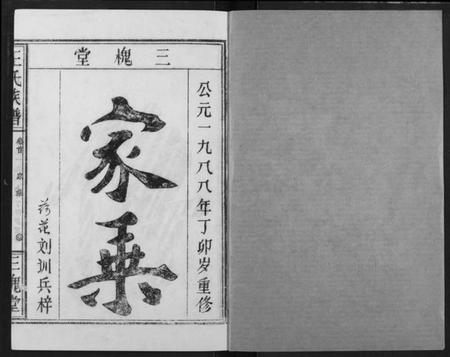 三槐堂
公元一九八八年丁卯岁重修
家乘
荷花刘训兵梓
王氏族谱
卷首
三槐堂